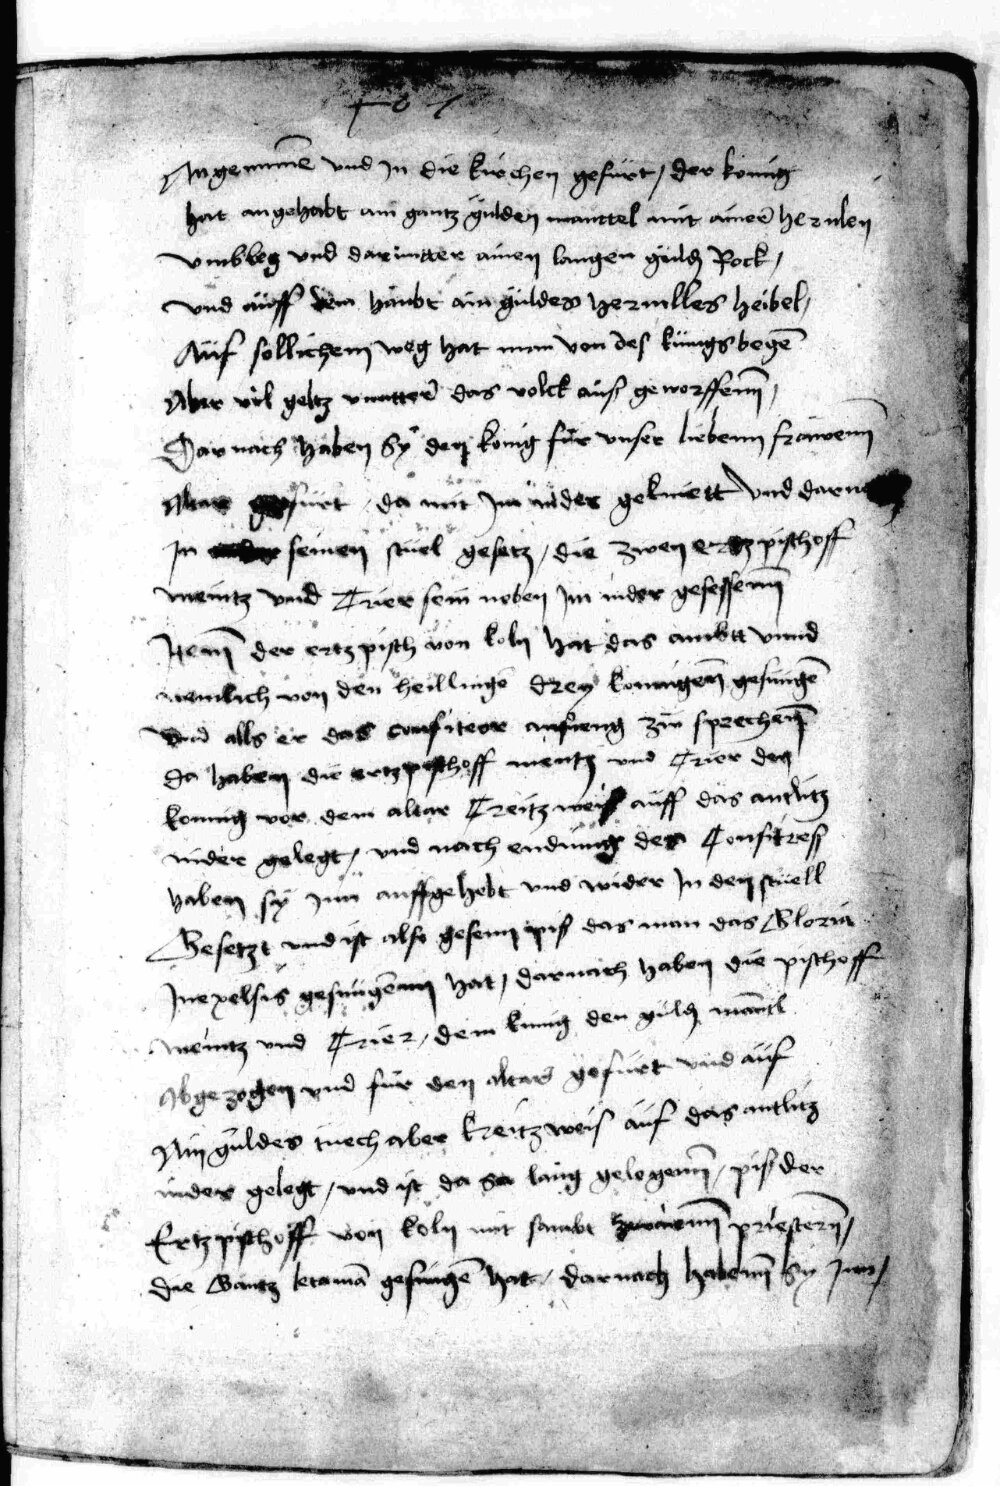 Angenumē vnd jn die kirchen gefürt / der konig
hat angehabt ain gantz gülden manttel mit ainer hermlen
vmbbeg vnd darunter ainen langen güldn Rock /
vnd auff dem haubt ain güldes hermlles heibel /
Auf sollichem weg hat man von des künigs begē
Aber vil geltz vnntter das volck auß geworffenn /
Darnach haben sy den konig für vnser liebenn frawenn
Altar gefürt / da mit jm nider gekniett vnd darnach
jn seinen stuel gesetz / die zwen ertzpischoff
meintz vnd Trier sein neben jm nider gesessenn
Jtem der ertzpisch von koln hat das ambtt vnnd
nemlich von den heillingē drey konnigenn gesungē
vnd alls er das confiteor anfieng zu sprechenn
da haben die ertzpischoff mentz vnd Trier den
konnig vor dem altar Creitzweiß auff das antlitz
nider gelegt / vnd nach endung des Confitress
haben sy jm auffgehebt vnd wider jn den stuell
Gesetzt vnd ist also gesenn piß das man das Gloria
jn exelsis gesungenn hat / darnach haben die pischoff
meintz vnd Trier / dem kunig den güldn mantl
Abgezogen vnd für den altar gefürt vnd auf
Ain güldes tuech aber kreitzweiß auf das antlitz
nider gelegt / vnd ist da so lang gelegenn / piß der
Ertzpischoff von koln mit sambt zwaienn priesternn /
die Gantz letaniā gesungē hat / darnach habenn sy jmn /